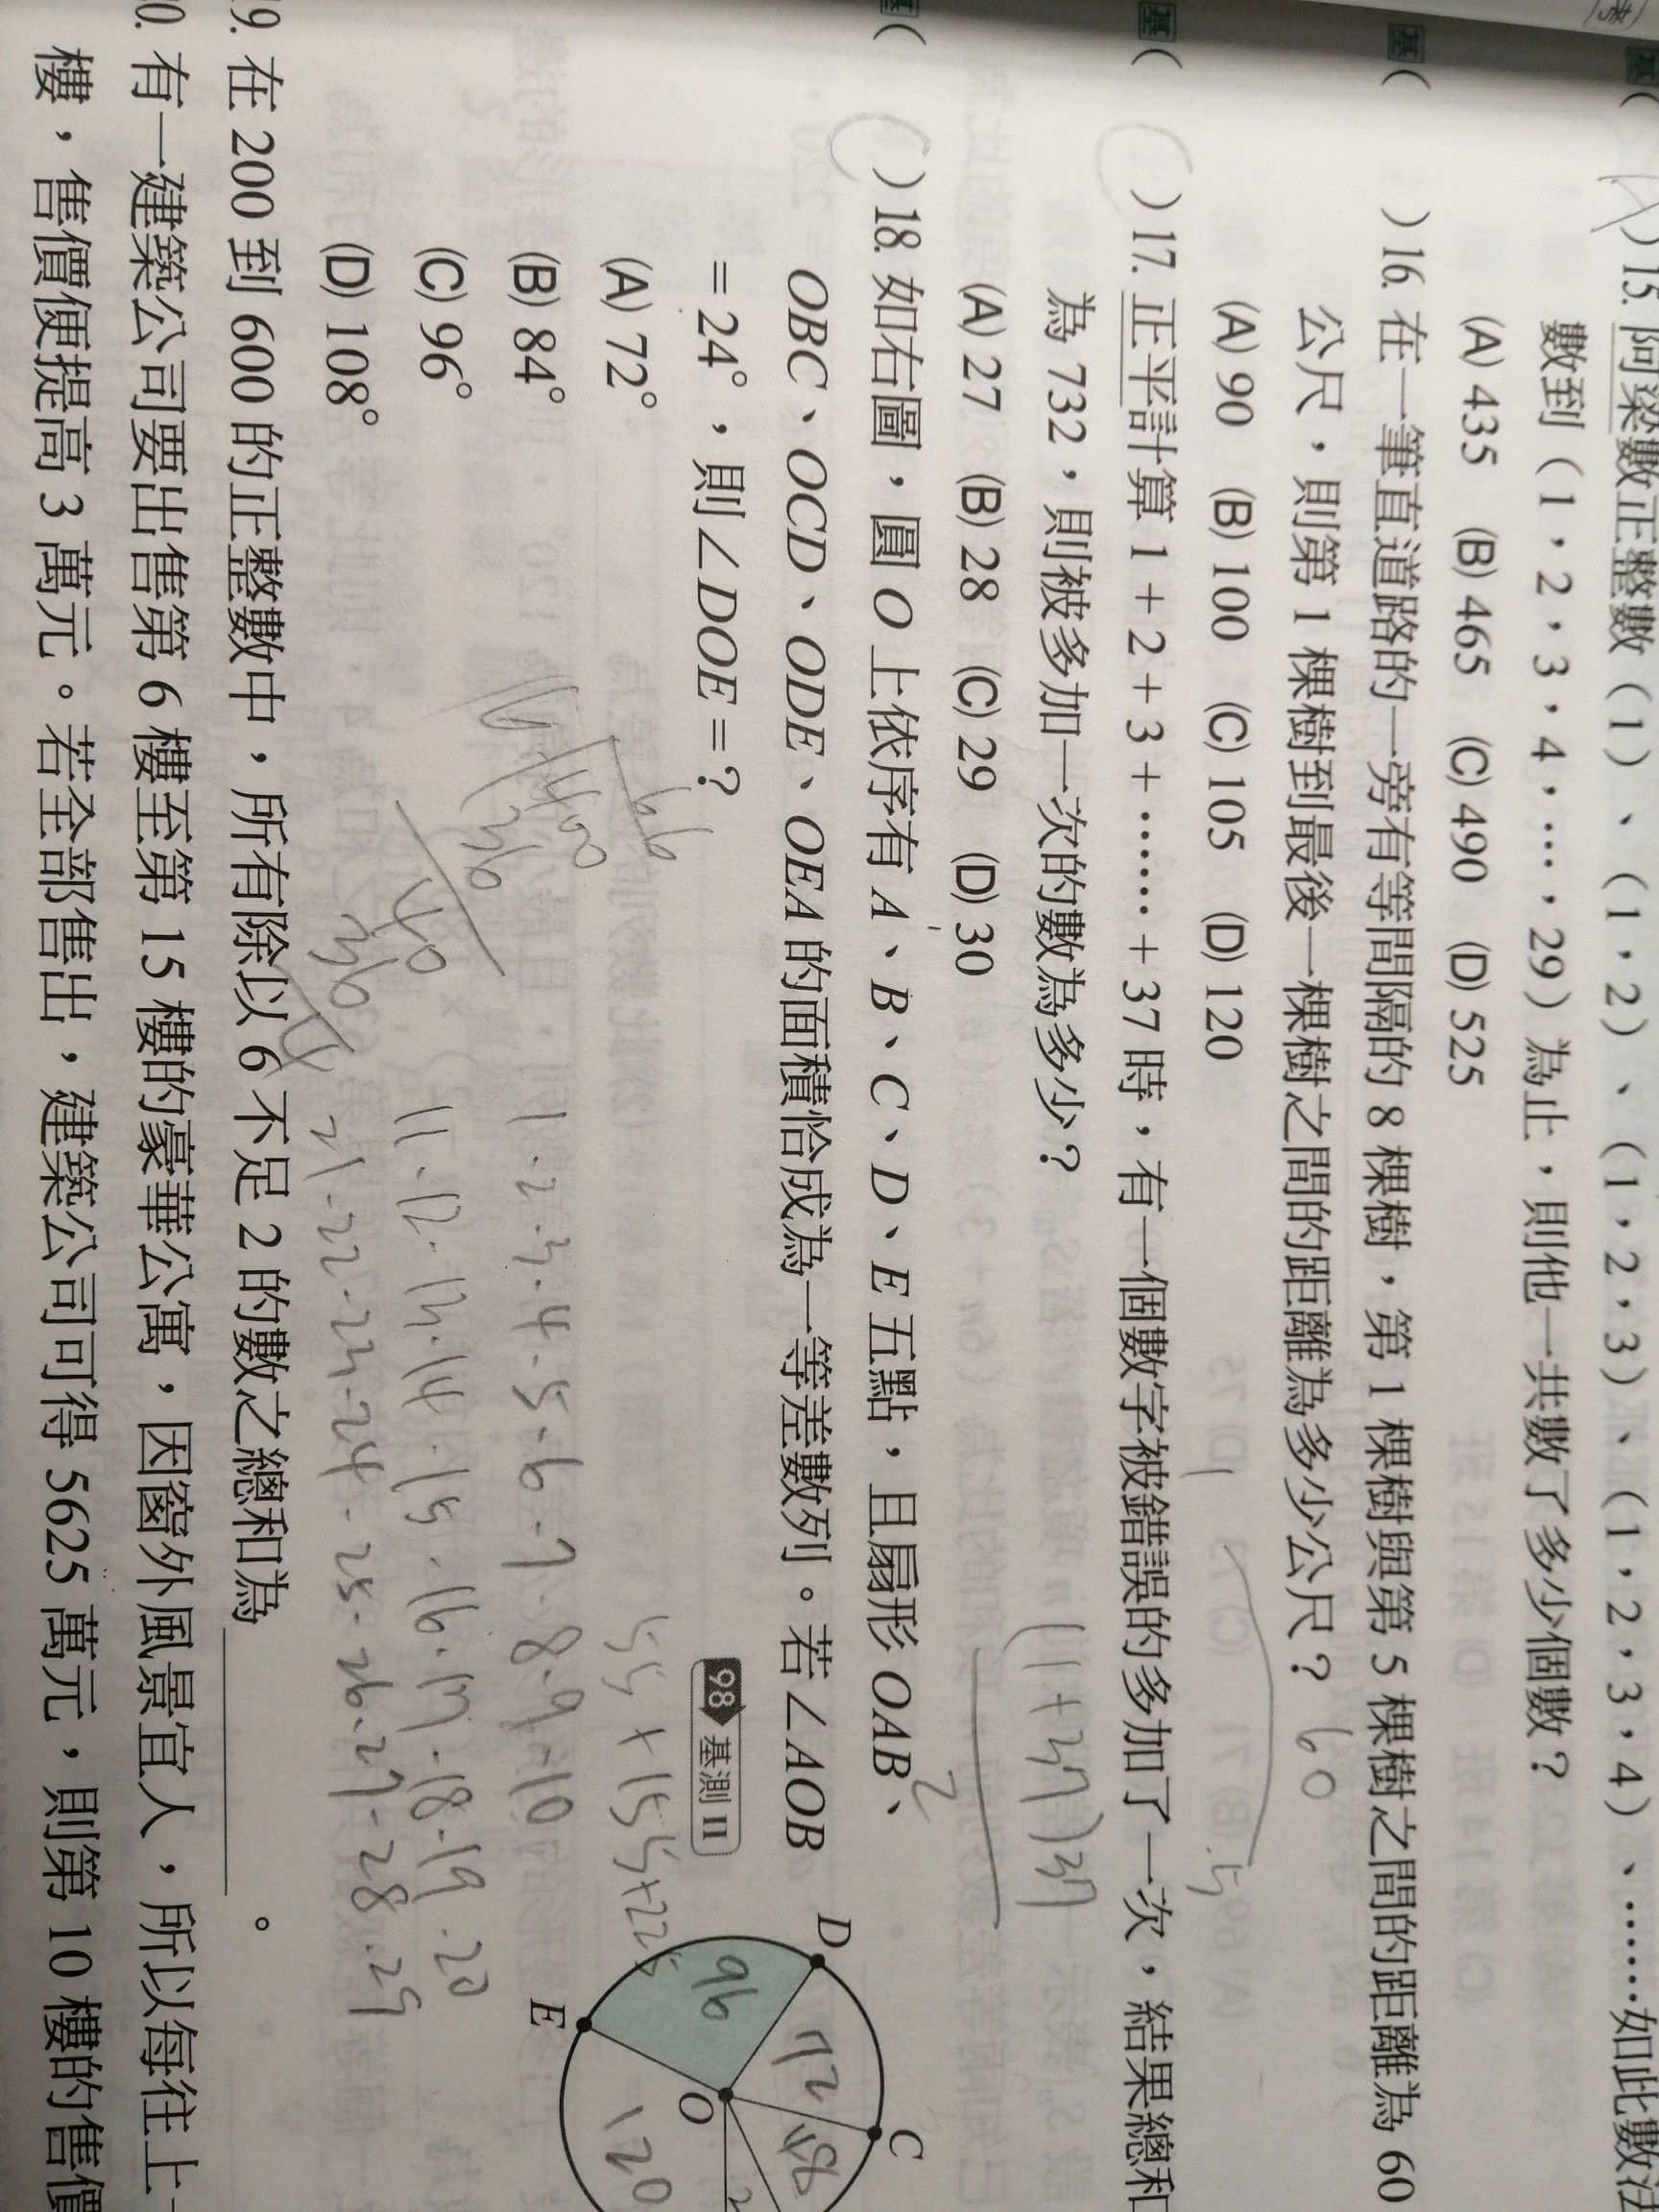 基( )15. 阿梁數正整數（1）、（1，2）、（1，2，3）、（1，2，3，4）、……如此數法
數到（1，2，3，4，…，29）為止，則他一共數了多少個數？
(A) 435 (B) 465 (C) 490 (D) 525
基( )16. 在一筆直道路的一旁有等間隔的 8 棵樹，第 1 棵樹與第 5 棵樹之間的距離為 60
公尺，則第 1 棵樹到最後一棵樹之間的距離為多少公尺？ 60
(A) 90 (B) 100 (C) 105 (D) 120
基( )17. 正平計算 1 + 2 + 3 + …… + 37 時，有一個數字被錯誤的多加了一次，結果總和
為 732，則被多加一次的數為多少？
(1+37)37
2
(A) 27 (B) 28 (C) 29 (D) 30
基( )18. 如右圖，圓 O 上依序有 A、B、C、D、E 五點，且扇形 OAB、
OBC、OCD、ODE、OEA 的面積恰成為一等差數列。若∠AOB
= 24°，則∠DOE = ？
98 基測 II
(A) 72°
(B) 84°
(C) 96°
(D) 108°
D
C
E
O
96
72
48
120
66
400
36
40
36
4
55+155+22
1.2.3.4.5.6.7.8.9.10
11.12.13.14.15.16.17.18.19.20
21.22.23.24.25.26.27.28.29
19. 在 200 到 600 的正整數中，所有除以 6 不足 2 的數之總和為 。
0. 有一建築公司要出售第 6 樓至第 15 樓的豪華公寓，因窗外風景宜人，所以每往上一
樓，售價便提高 3 萬元。若全部售出，建築公司可得 5625 萬元，則第 10 樓的售價